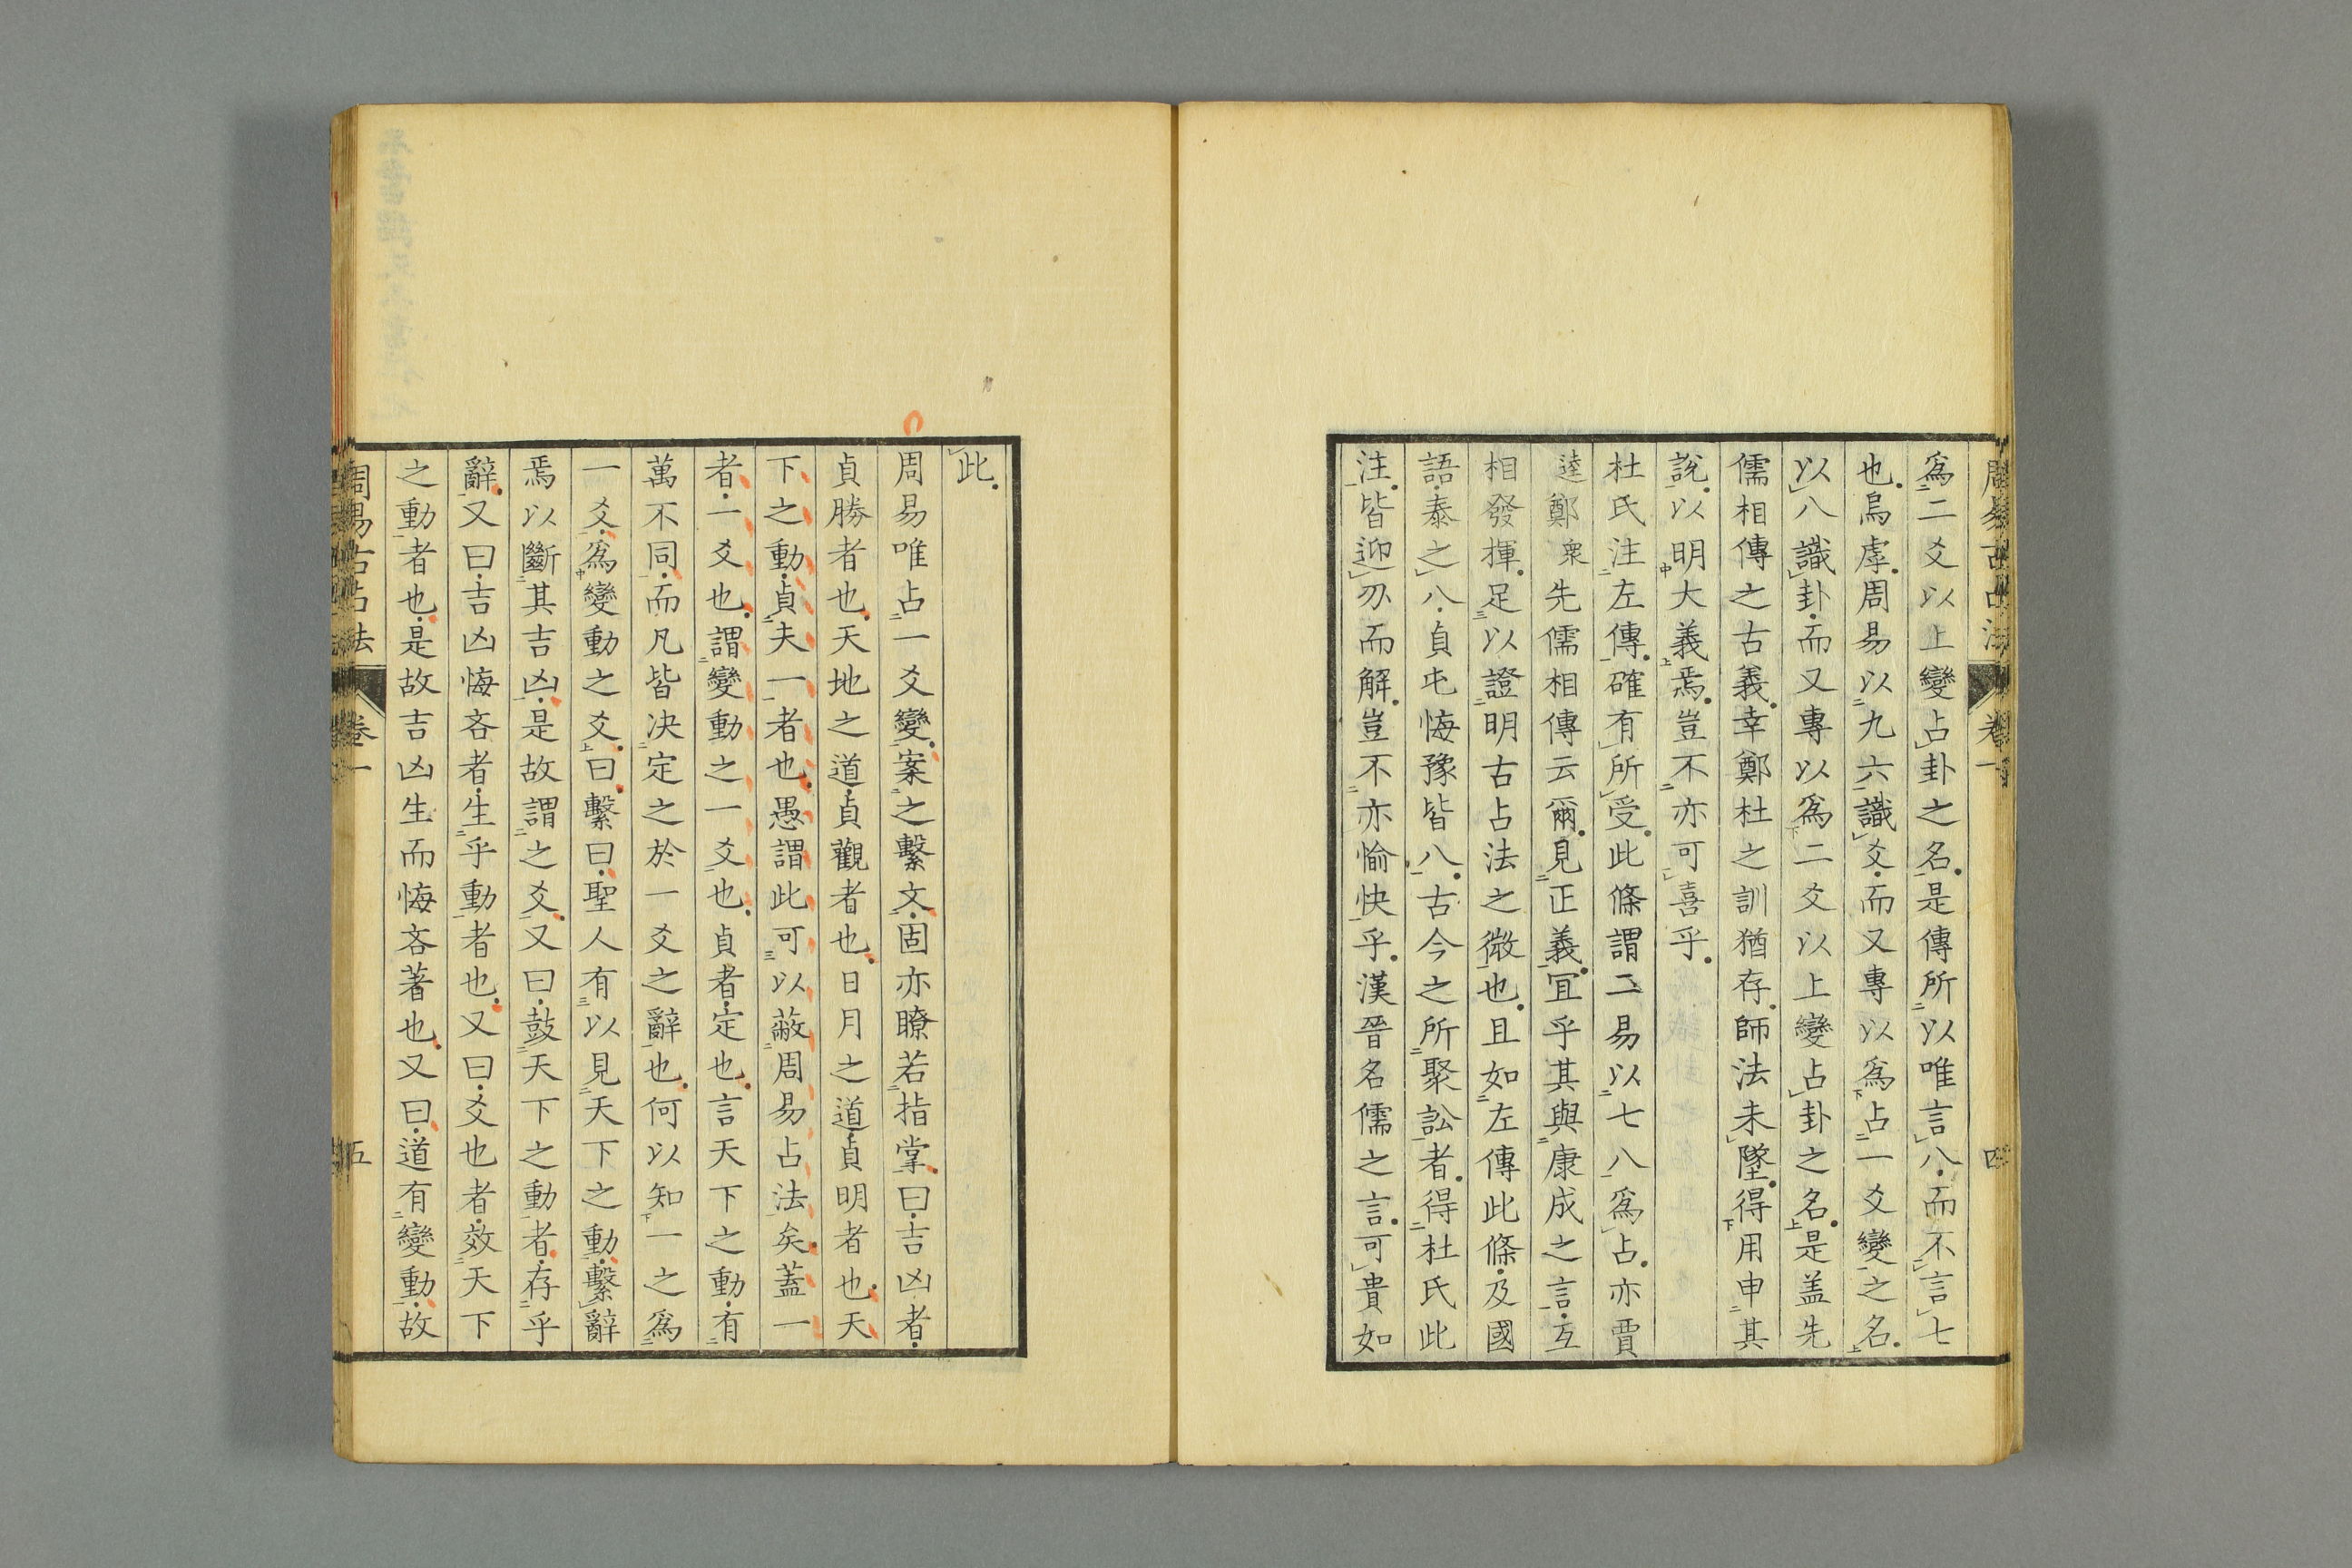 周易古占法 卷一 四
爲二爻以上變占卦之名是傳所以唯言八而不言七
也烏虖周易以九六識爻而又專以爲占一爻變之名
以八識卦而又專以爲二爻以上變占卦之名是盖先
儒相傳之古義幸鄭杜之訓猶存師法未墜得用申其
說以明大義焉豈不亦可喜乎
杜氏注左傳確有所受此條謂二易以七八爲占亦賈
逵鄭衆先儒相傳云爾見正義冝乎其與康成之言互
相發揮足以證明古占法之微也且如左傳此條及國
語泰之八貞屯悔豫皆八古今之所聚訟者得杜氏此
注皆迎刃而解豈不亦愉快乎漢晉名儒之言可貴如
此
周易唯占一爻變案之繫文固亦瞭若指掌曰吉凶者
貞勝者也天地之道貞觀者也日月之道貞明者也天
下之動貞夫一者也愚謂此可以蔽周易占法矣蓋一
者一爻也謂變動之一爻也貞者定也言天下之動有
萬不同而凡皆决定之於一爻之辭也何以知一之爲
一爻爲變動之爻曰繫曰聖人有以見天下之動繫辭
焉以斷其吉凶是故謂之爻又曰鼓天下之動者存乎
辭又曰吉凶悔吝者生乎動者也又曰爻也者效天下
之動者也是故吉凶生而悔吝著也又曰道有變動故
周易古占法 卷一 五